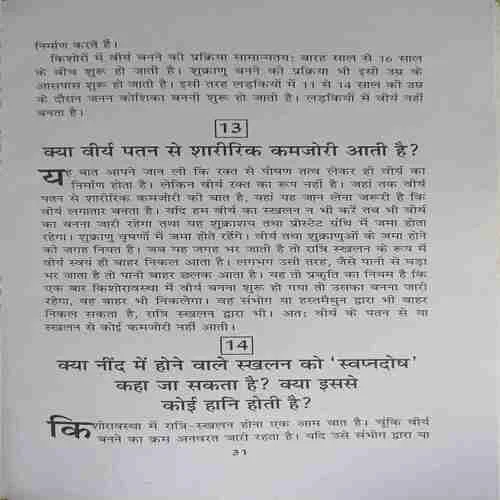 निर्माण करते हैं।
किशोरों में वीर्य बनने की प्रक्रिया सामान्यतः बारह साल से 16 साल
के बीच शुरू हो जाती है। शुक्राणु बनने की प्रक्रिया भी इसी उम्र के
आसपास शुरू हो जाती है। इसी तरह लड़कियों में 11 से 14 साल की उम्र
के दौरान जनन कोशिका बननी शुरू हो जाती है। लड़कियों में वीर्य नहीं
बनता है।
13
क्या वीर्य पतन से शारीरिक कमजोरी आती है?
यह बात आपने जान ली कि रक्त से पोषण तत्व लेकर ही वीर्य का
निर्माण होता है। लेकिन वीर्य रक्त का रूप नहीं है। जहां तक वीर्य
पतन से शारीरिक कमजोरी की बात है, यहां यह जान लेना जरूरी है कि
वीर्य लगातार बनता है। यदि हम वीर्य का स्खलन न भी करें तब भी वीर्य
का बनना जारी रहेगा तथा यह शुक्राशय तथा प्रोस्टेट ग्रंथि में जमा होता
रहेगा। शुक्राणु वृषणों में जमा होते रहेंगे। वीर्य तथा शुक्राणुओं के जमा होने
की जगह नियत है। जब यह जगह भर जाती है तो रात्रि स्खलन के रूप में
वीर्य स्वयं ही बाहर निकल आता है। लगभग उसी तरह, जैसे पानी से घड़ा
भर जाता है तो पानी बाहर छलक आता है। यह तो प्रकृति का नियम है कि
एक बार किशोरावस्था में वीर्य बनना शुरू हो गया तो उसका बनना जारी
रहेगा, वह बाहर भी निकलेगा। वह संभोग या हस्तमैथुन द्वारा भी बाहर
निकल सकता है, रात्रि स्खलन द्वारा भी। अतः वीर्य के पतन से या
स्खलन से कोई कमजोरी नहीं आती।
14
क्या नींद में होने वाले स्खलन को 'स्वप्नदोष'
कहा जा सकता है? क्या इससे
कोई हानि होती है?
किशोरावस्था में रात्रि-स्खलन होना एक आम बात है। चूंकि वीर्य
बनने का क्रम अनवरत जारी रहता है। यदि उसे संभोग द्वारा या
31